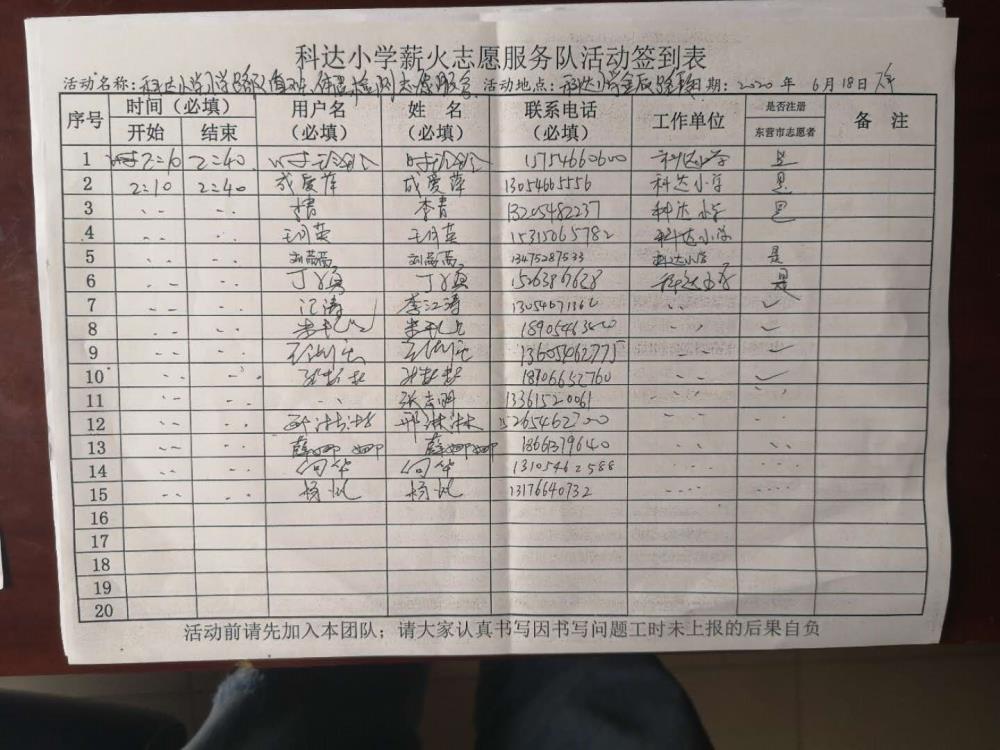 科达小学薪火志愿服务队活动签到表
活动名称：科达小学 值班、体温检测志愿服务 活动地点：科达小学 日期：2020 年 6月18日
序号 时间（必填） 用户名（必填） 姓名（必填） 联系电话（必填） 工作单位 是否注册东营市志愿者 备注
开始 结束
1 2=10 2=40 15754660600 科达小学 是
2 2=10 2=40 成爱萍 成爱萍 13054665556 科达小学 是
3 ·· ·· 李青 李青 13205482237 科达小学 是
4 ·· ·· 王月英 王月英 15315065782 科达小学
5 ·· ·· 13475287533 科达小学 是
6 ·· ·· 15263867628 科达小学 是
7 ·· ·· 江涛 李江涛 ·· ✓
8 ·· ·· ·· ✓
9 ·· ·· 13605462775 ·· ✓
10 ·· ·· 18906652760 ·· ✓
11 ·· ·· ·· 13361520061 ·· ··
12 ·· ·· 邢淋淋 邢淋淋 5265462700 ·· ··
13 ·· ·· 薛娜娜 薛娜娜 1866379640 ·· ··
14 ·· ·· 13105462588 ···· ··
15 ·· ·· 杨帆 杨帆 13176640732 ···· ····
16
17
18
19
20
活动前请先加入本团队；请大家认真书写因书写问题工时未上报的后果自负